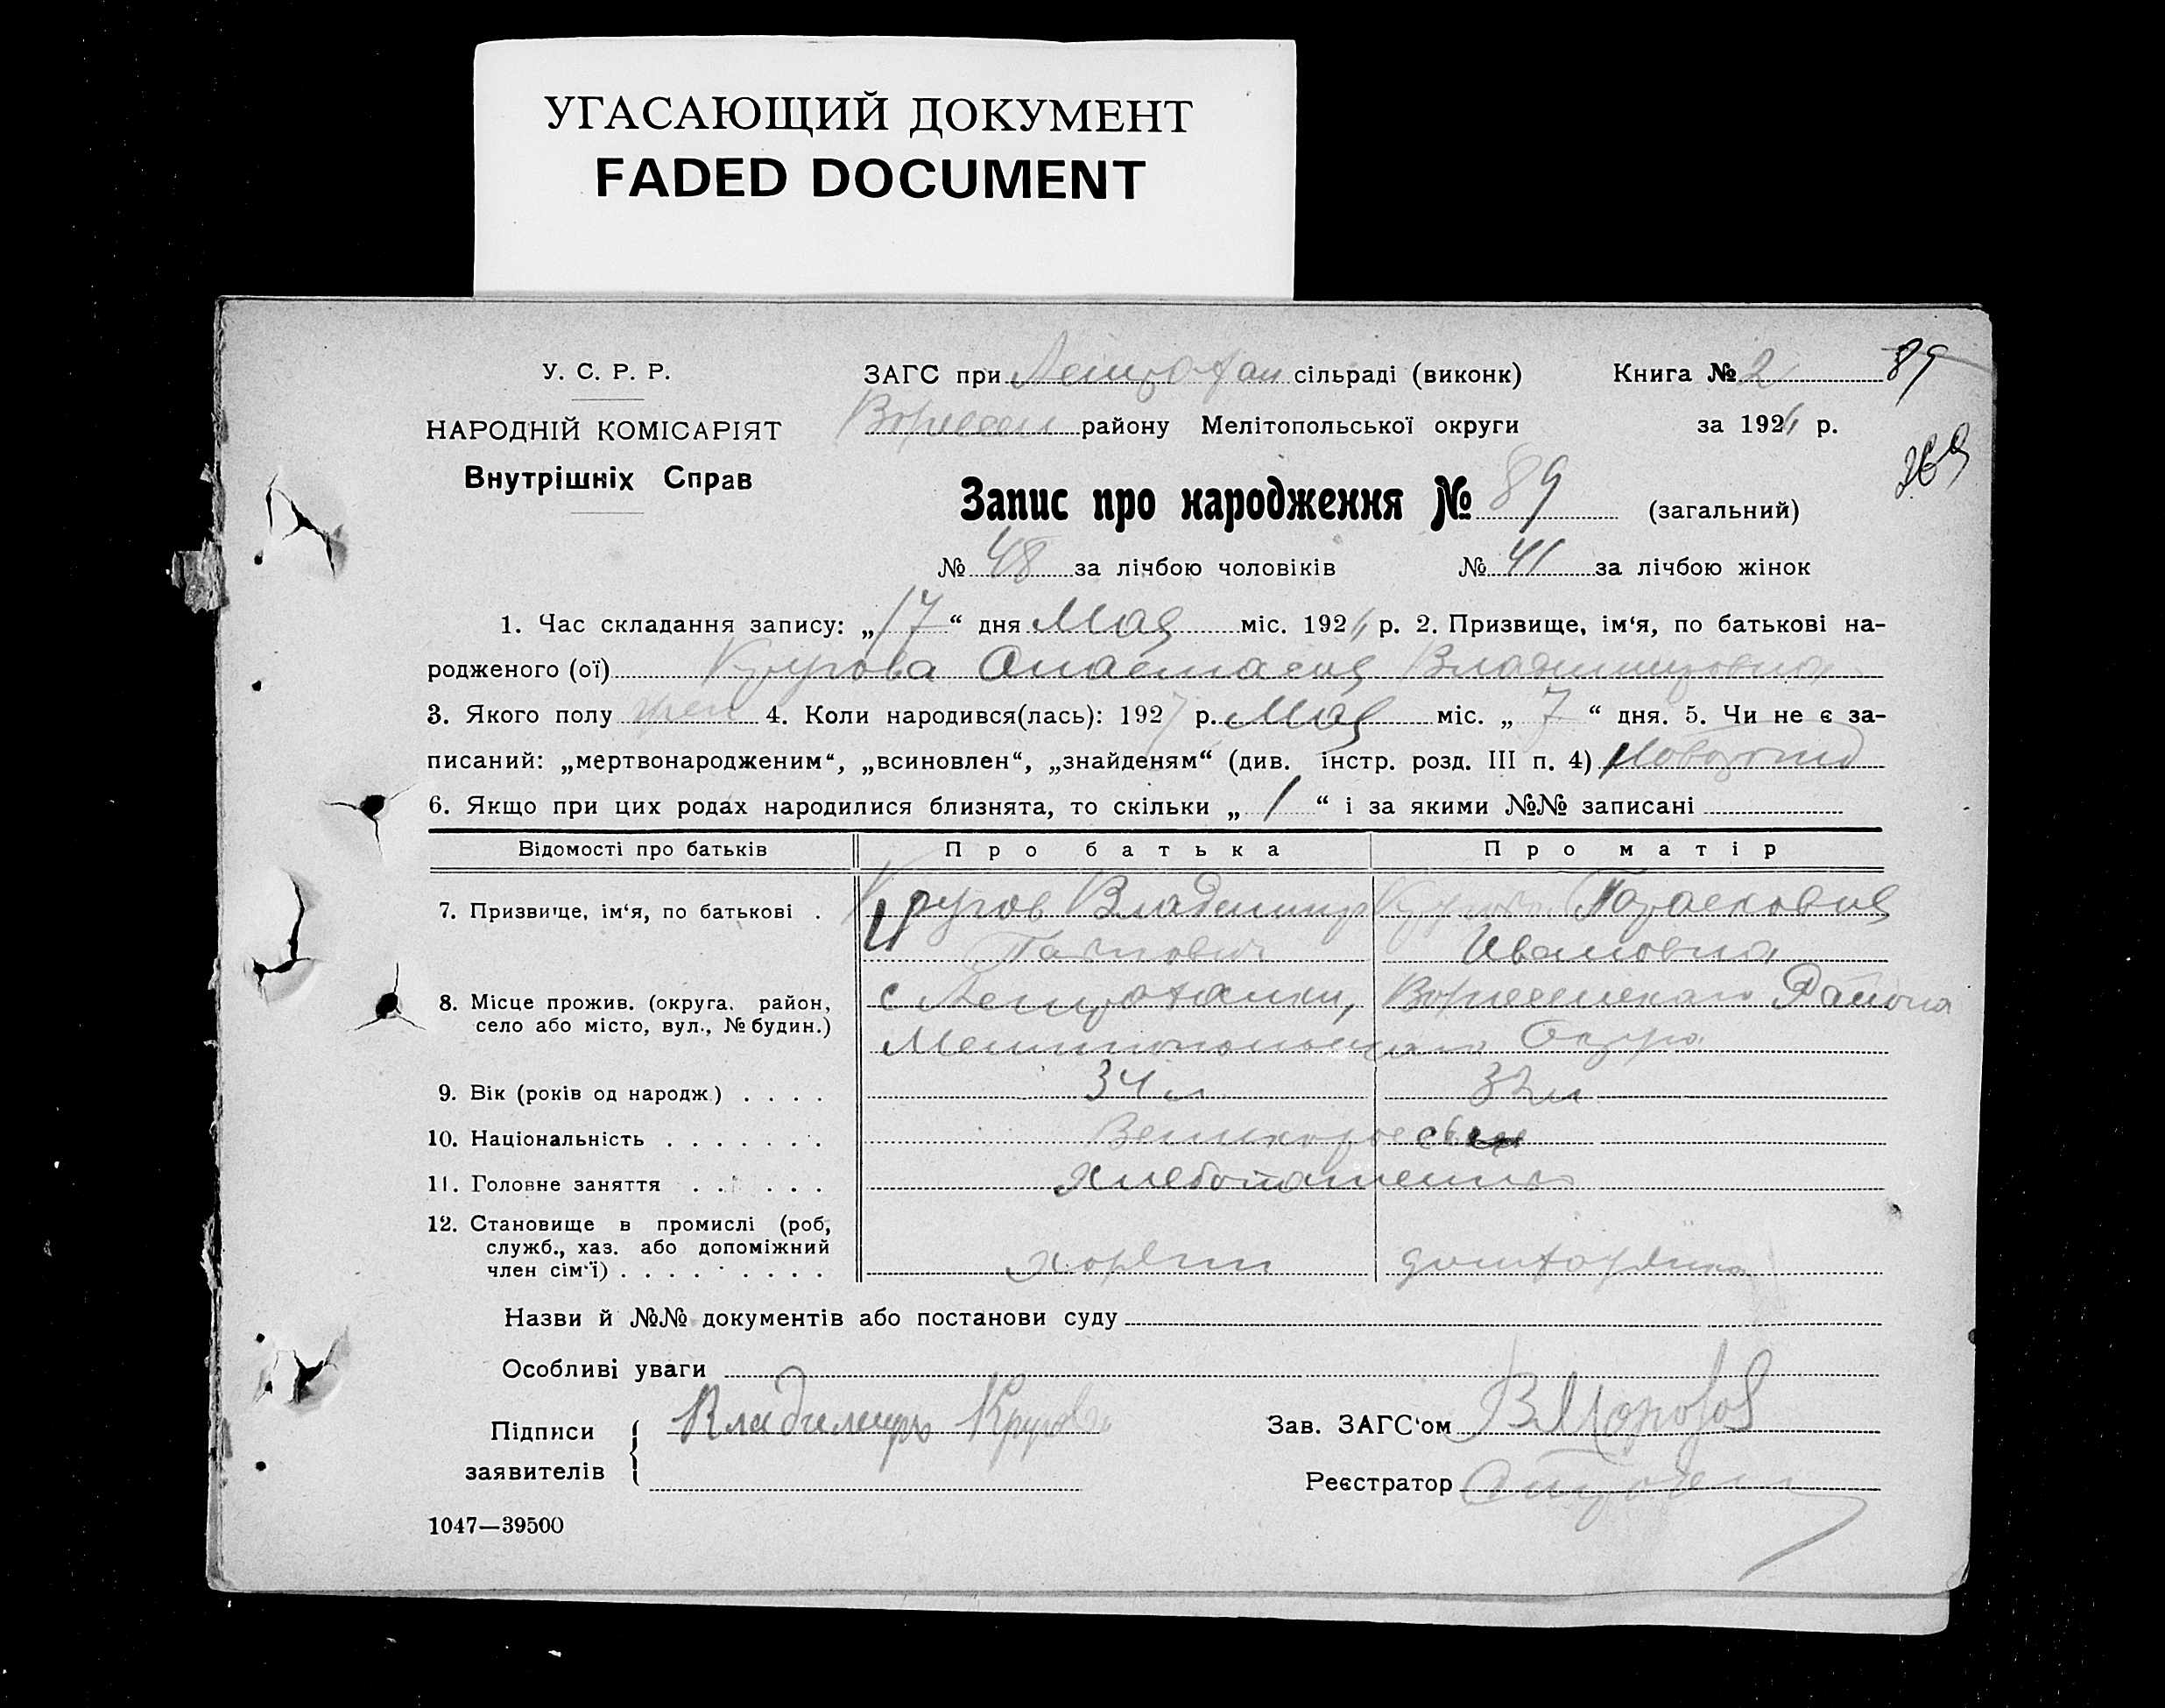 УГАСАЮЩИЙ ДОКУМЕНТ
FADED DOCUMENT
У. С. Р. Р.
НАРОДНІЙ КОМІСАРІЯТ
Внутрішніх Справ
ЗАГС при сільраді (виконк)
району Мелітопольської округи
Книга № 2
89
за 192 р.
269
Запис про народження № 89 (загальний)
№ 48 за лічбою чоловіків № 41 за лічбою жінок
1. Час складання запису: „17“ дня Мая міс. 192 р. 2. Призвище, ім‘я, по батькові на-
родженого (ої) Кругова Анастасия Владимировна
3. Якого полу жен 4. Коли народився(лась): 192 р. Мая міс. „ 7 “ дня. 5. Чи не є за-
писаний: „мертвонародженим“, „всиновлен“, „знайденям“ (див. інстр. розд. III п. 4)
6. Якщо при цих родах народилися близнята, то скільки „ 1 “ і за якими №№ записані
Відомості про батьків Про батька Про матір
7. Призвище, ім‘я, по батькові . Кругов Владимир Кругова Парасковия
Ивановна
8. Місце прожив. (округа. район, с Вознесенскаго Района
село або місто, вул., № будин.) Мелитопольскаго Округа
9. Вік (років од народж.) . . . . 34 л 32 л
10. Національність . . . . . . .
11. Головне заняття . . . . . . Хлебопашенство
12. Становище в промислі (роб,
служб., хаз. або допоміжний
член сім‘ї) . . . . . . . . .
Назви й №№ документів або постанови суду
Особливі уваги
Підписи
заявителів
Владимиръ Круговъ
Зав. ЗАГС‘ом
Реєстратор
1047—39500